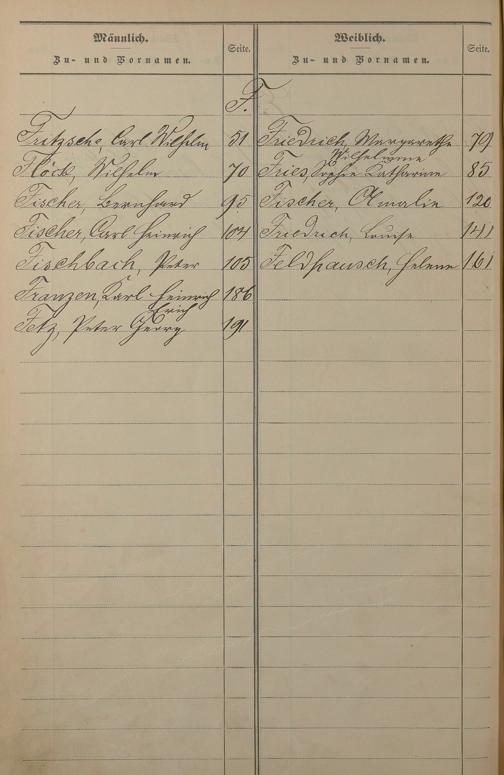 Männlich.
Zu- und Vornamen.
Seite.
Weiblich.
Zu- und Vornamen.
Seite.
F.
Fritzsche, Carl Wilhelm 51
Flöck, Wilhelm 70
Fischer, Bernhard 95
Fischer, Carl Heinrich 104
Fischbach, Peter 105
Franzen, Karl Heinrich 186
Erich
Fetz, Peter Georg 191
Friedrich, Margarethe 79
Wilhelmine
Fries, Sophie Katharine 85
Fischer, Amalie 120
Friedrich, Louise 141
Feldhausch, Helene 161